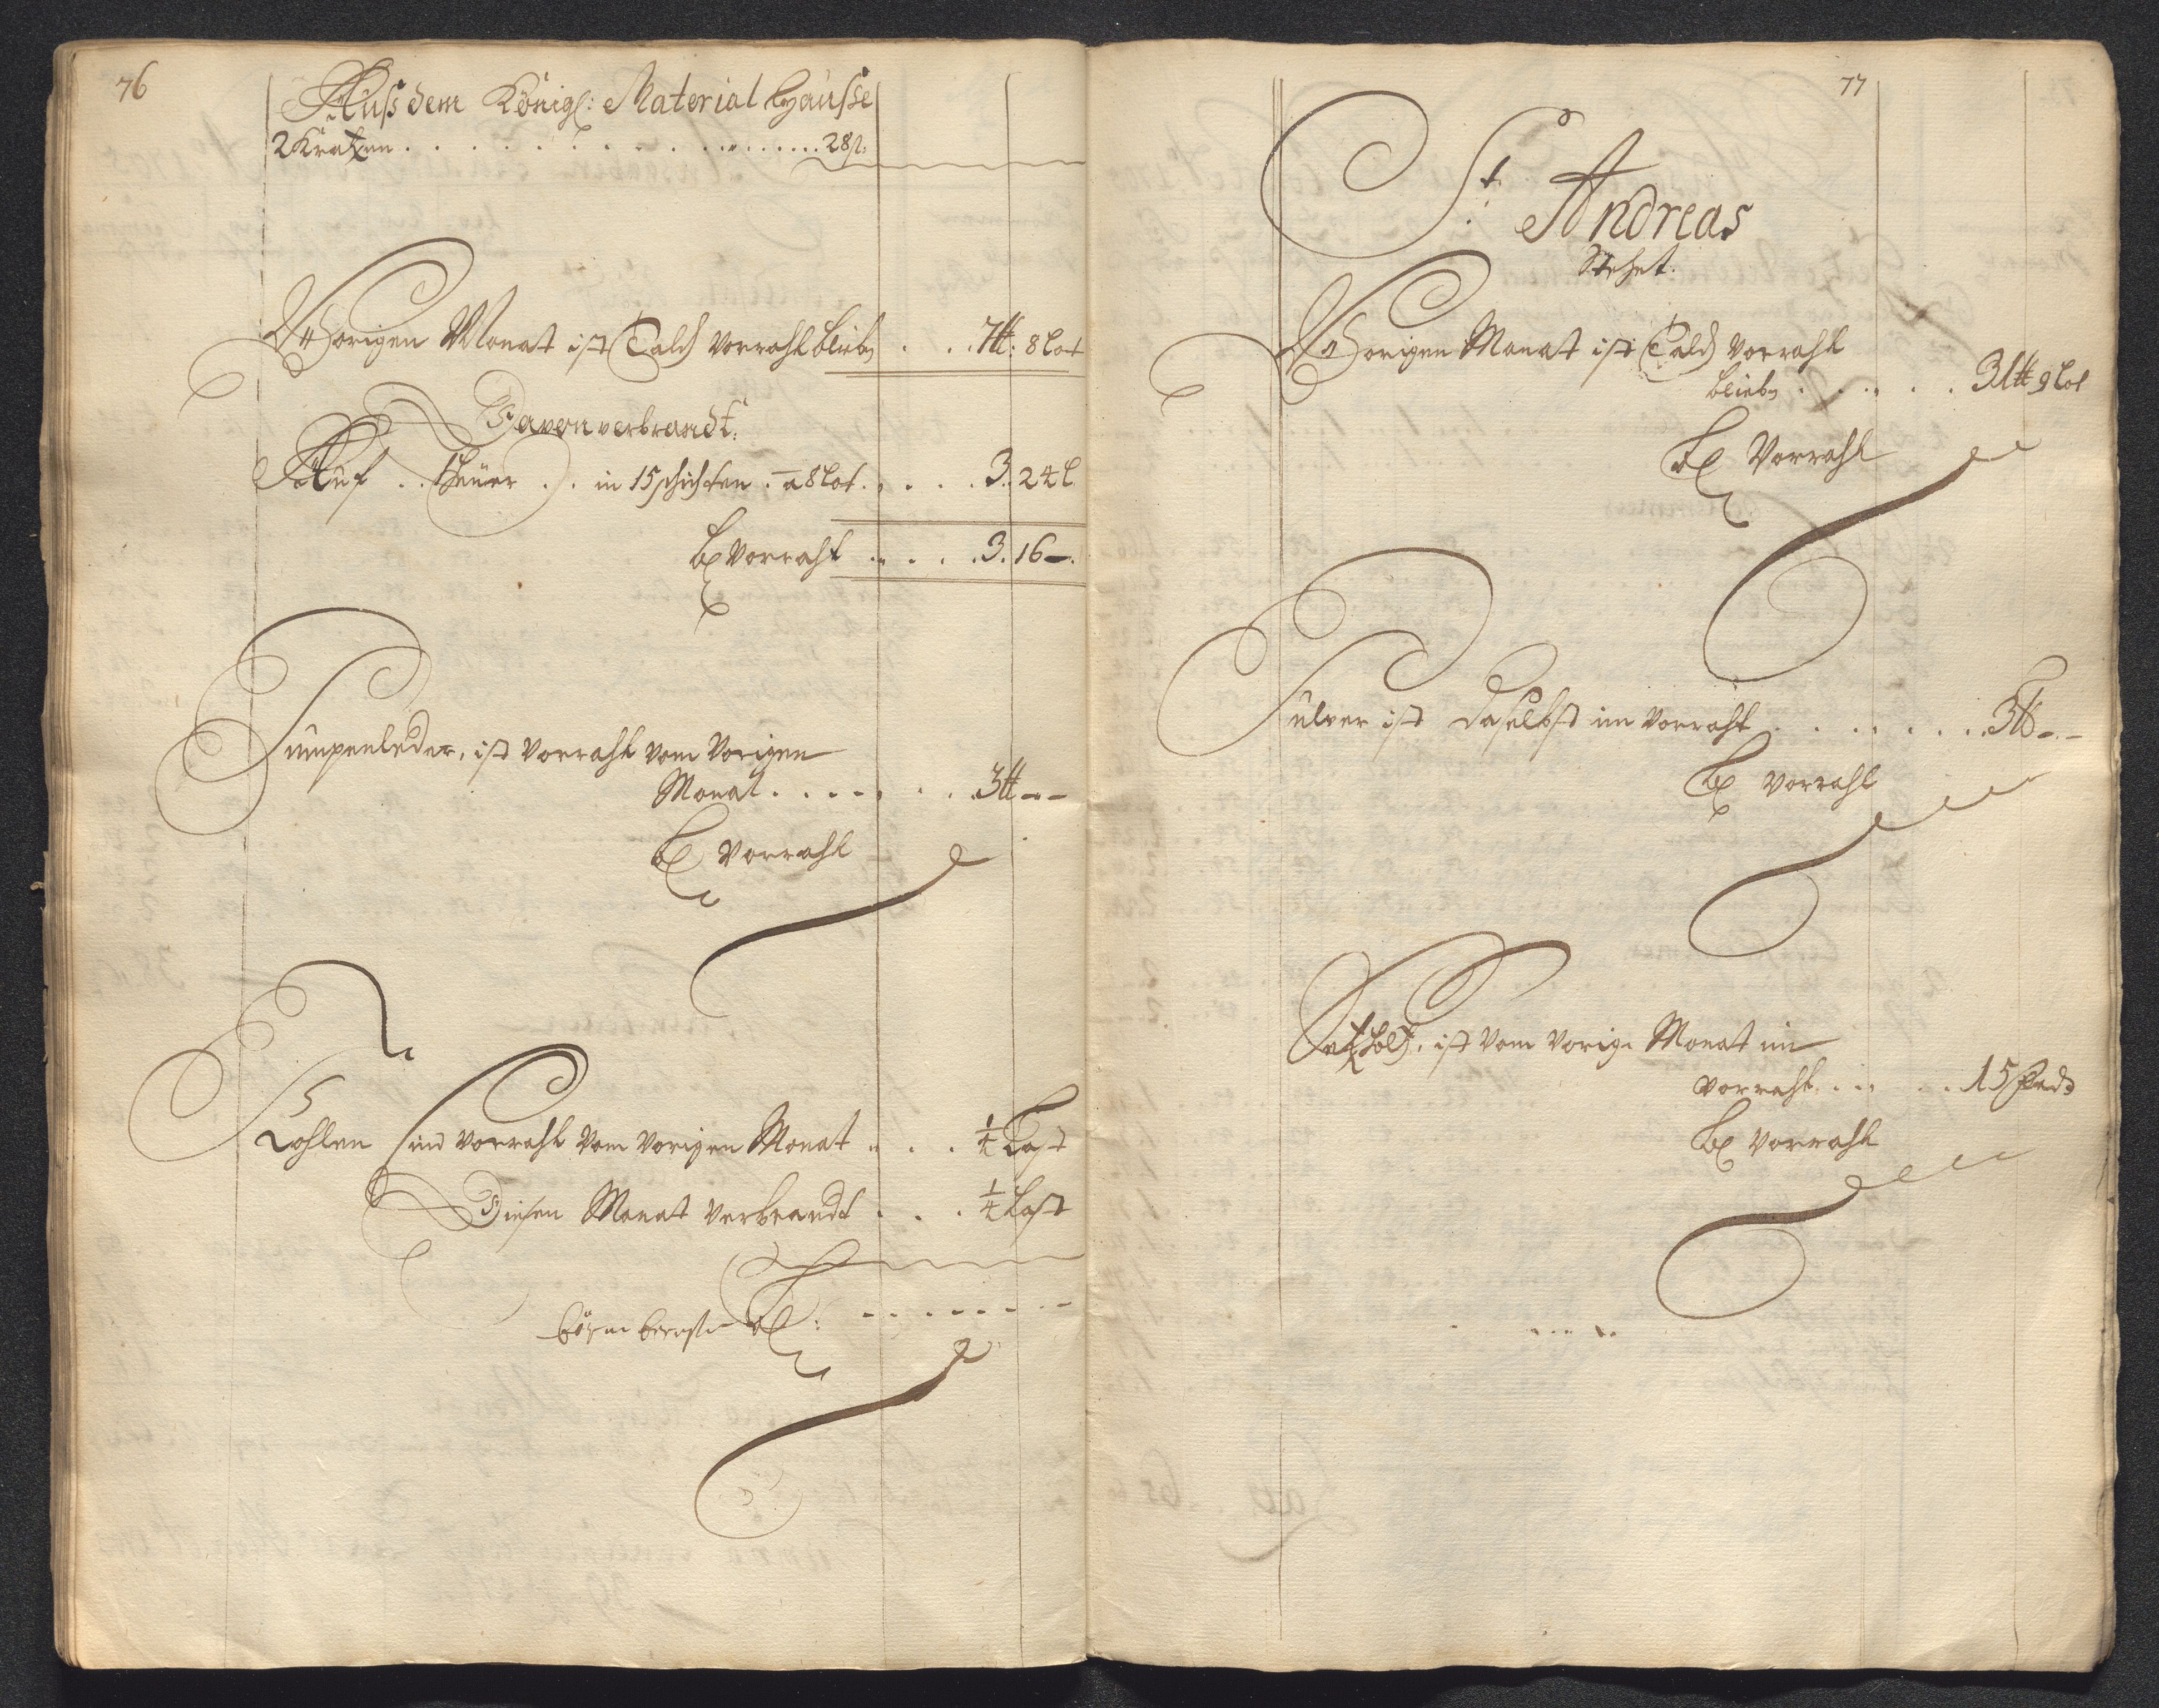 76
Auß dem Königl: Material Hausse
2 Kratzen . . . . . . . . . . . . . . 28 ß:
Vorigen Monat ist Talch Vorraht blieb . . . 7 ℔: 8 Lot
Davon verbrandt:
Auf . . . in 15 schichten . a 8 Lot . . . . . 3. 24 L
bl Vorraht . . . . 3. 16 –.
Pumpenleder, ist Vorraht vom Vorigen
Monat . . . . . . . 3 ℔ – –
bl Vorraht
Kohlen sind Vorraht vom Vorigen Monat . . . ¼ Last
Diesen Monat Verbrandt . . . ¼ Last
bl: - - - - - - -
77
St Andreas
Stehet.
Vorigen Monat ist Talch Vorraht
blieb . . . . . . 31 ℔ 9 Lot
bl Vorraht
Pulver ist daselbst im Vorraht . . . . . . . 5 ℔ – –
bl Vorraht
Setzholtz, ist vom Vorige Monat im
Vorraht . . . . . 15
bl Vorraht